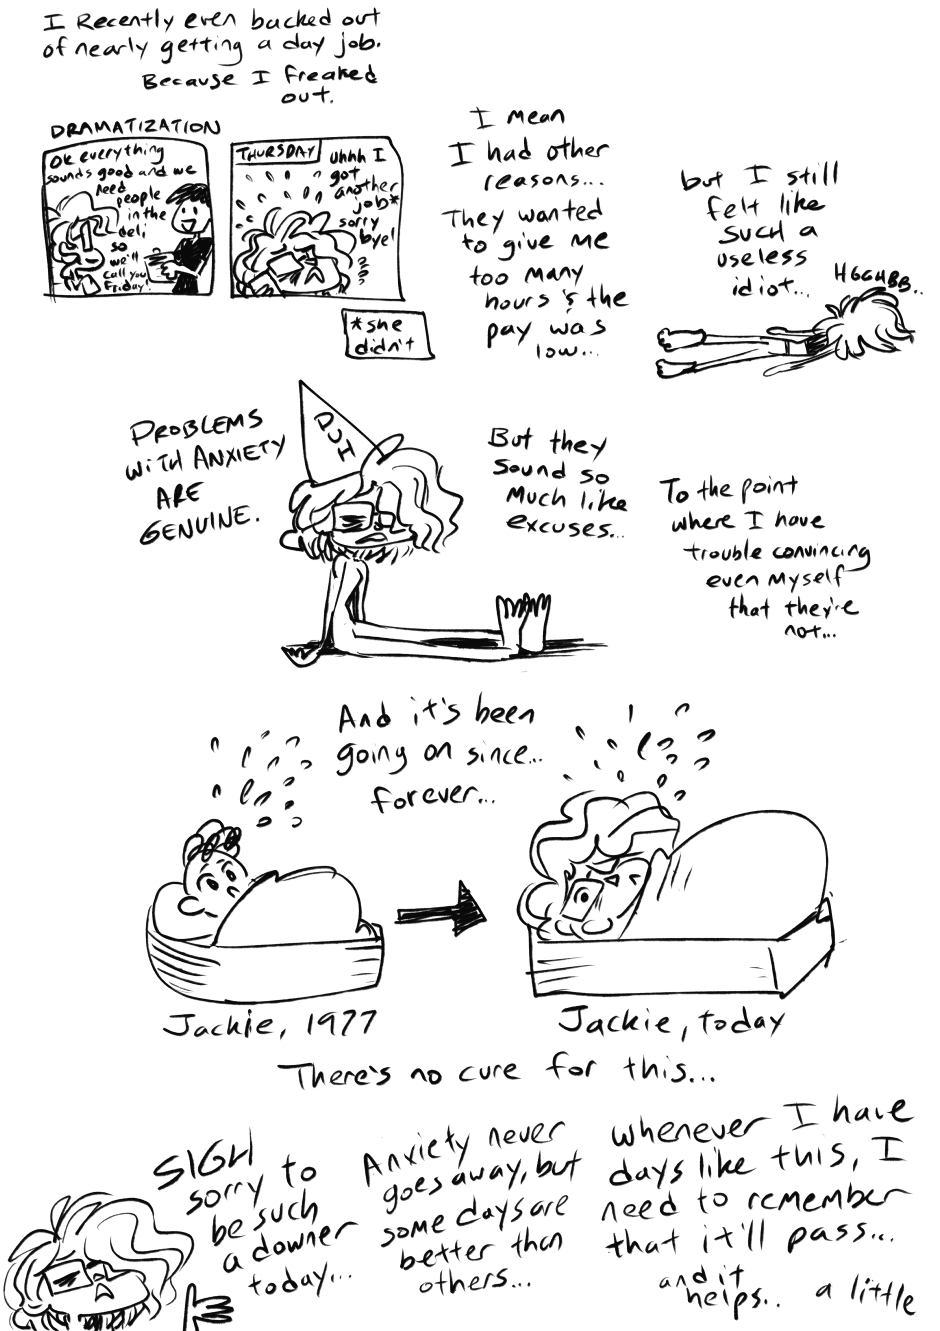 I Recently even backed out
of nearly getting a day job.
Because I freaked
out.
DRAMATIZATION
Ok everything
sounds good and we
need
people
in the
deli
so
we'll
call you
Friday!
THURSDAY
Uhhh I
got
another
job*
sorry
bye!
*she
didn't
I mean
I had other
reasons...
They wanted
to give me
too many
hours & the
pay was
low...
but I still
felt like
such a
useless
idiot...
HGGHBB..
PROBLEMS
WITH ANXIETY
ARE
GENUINE.
DUH
But they
sound so
much like
excuses...
To the point
where I have
trouble convincing
even myself
that they're
not...
And it's been
going on since...
forever...
Jackie, 1977
Jackie, today
There's no cure for this...
SIGH
sorry to
be such
a downer
today...
Anxiety never
goes away, but
some days are
better than
others...
whenever I have
days like this, I
need to remember
that it'll pass...
and it
helps.. a little